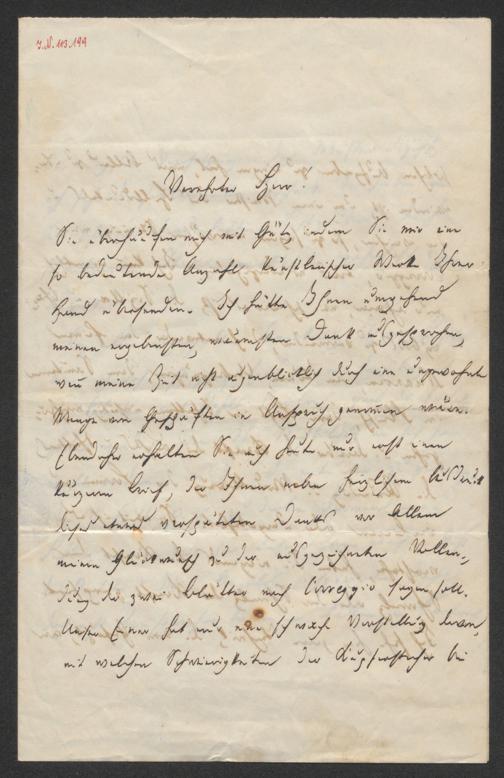 I.N. 113.199
Verehrter Herr!
Sie überhäufen mich mit Güte, indem Sie mir eine
so bedeutende Anzahl künstlerischer Werke Ihrer
Hand übersenden. Ich hätte Ihnen umgehend
meinen ergebensten, wärmsten Dank ausgesprochen,
wenn meine Zeit nicht augenblicklich durch eine ungewohnte
Menge von Geschäften in Anspruch genommen wäre.
Ebendaher erhalten Sie auch heute nur erst einen
kurzen Brief, der Ihnen neben herzlichem Ausdruck
dieses etwas verspäteten Danks vor Allem
meinen Glückwunsch zu der ausgezeichneten Vollen-
dung der zwei Blätter nach Correggio sagen soll.
Unser Einer hat nur eine schwache Vorstellung davon,
mit welchen Schwierigkeiten der Kupferstecher bei